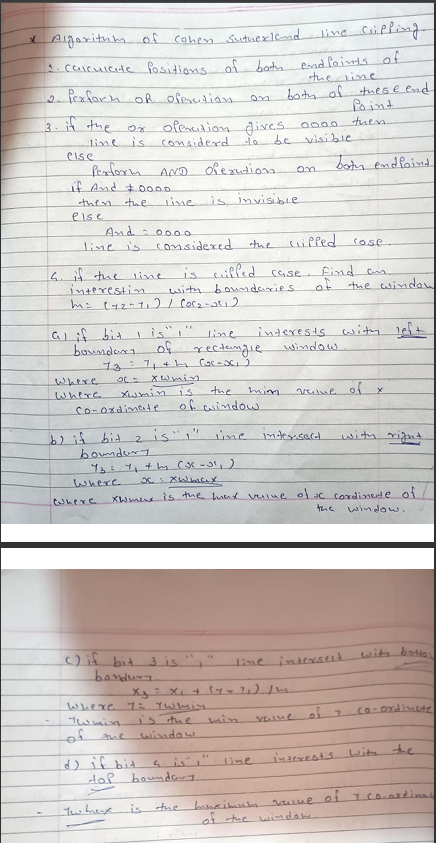 * Algorithm of cohen sutherland line clipping.
1. calculate Positions of both endpoints of
the line
2. Perform OR Operation on both of these end
Point
3. if the or operation gives 0000 then
line is considerd to be visible
else
Perform AND Operation on both endpoint
if And ≠ 0000
then the line is invisible
else
And = 0000
line is considered the clipped case.
4. if the line is clipped case. Find an
interestin with boundaries of the window
m = (y2-y1) / (x2-x1)
a) if bit 1 is "1" line interests with left
boundary of rectangle window.
y3 = y1 + m (x-x1)
where x = xwmin
where xwmin is the mim value of x
co-ordinate of window
b) if bit 2 is "1" line intersect with right
boundary
y3 = y1 + m (x-x1)
where x = xwmax
where xwmax is the max value of x cordinate of
the window.
c) if bit 3 is "1" line intersect with bottom
bondury.
x3 = x1 + (y-y1) /m
where y = ywmin
- ywmin is the min value of y co-ordinate
of the window
d) if bit 4 is "1" line interests with the
top boundary
- ywmax is the maximum value of y co-ordinat
of the window.